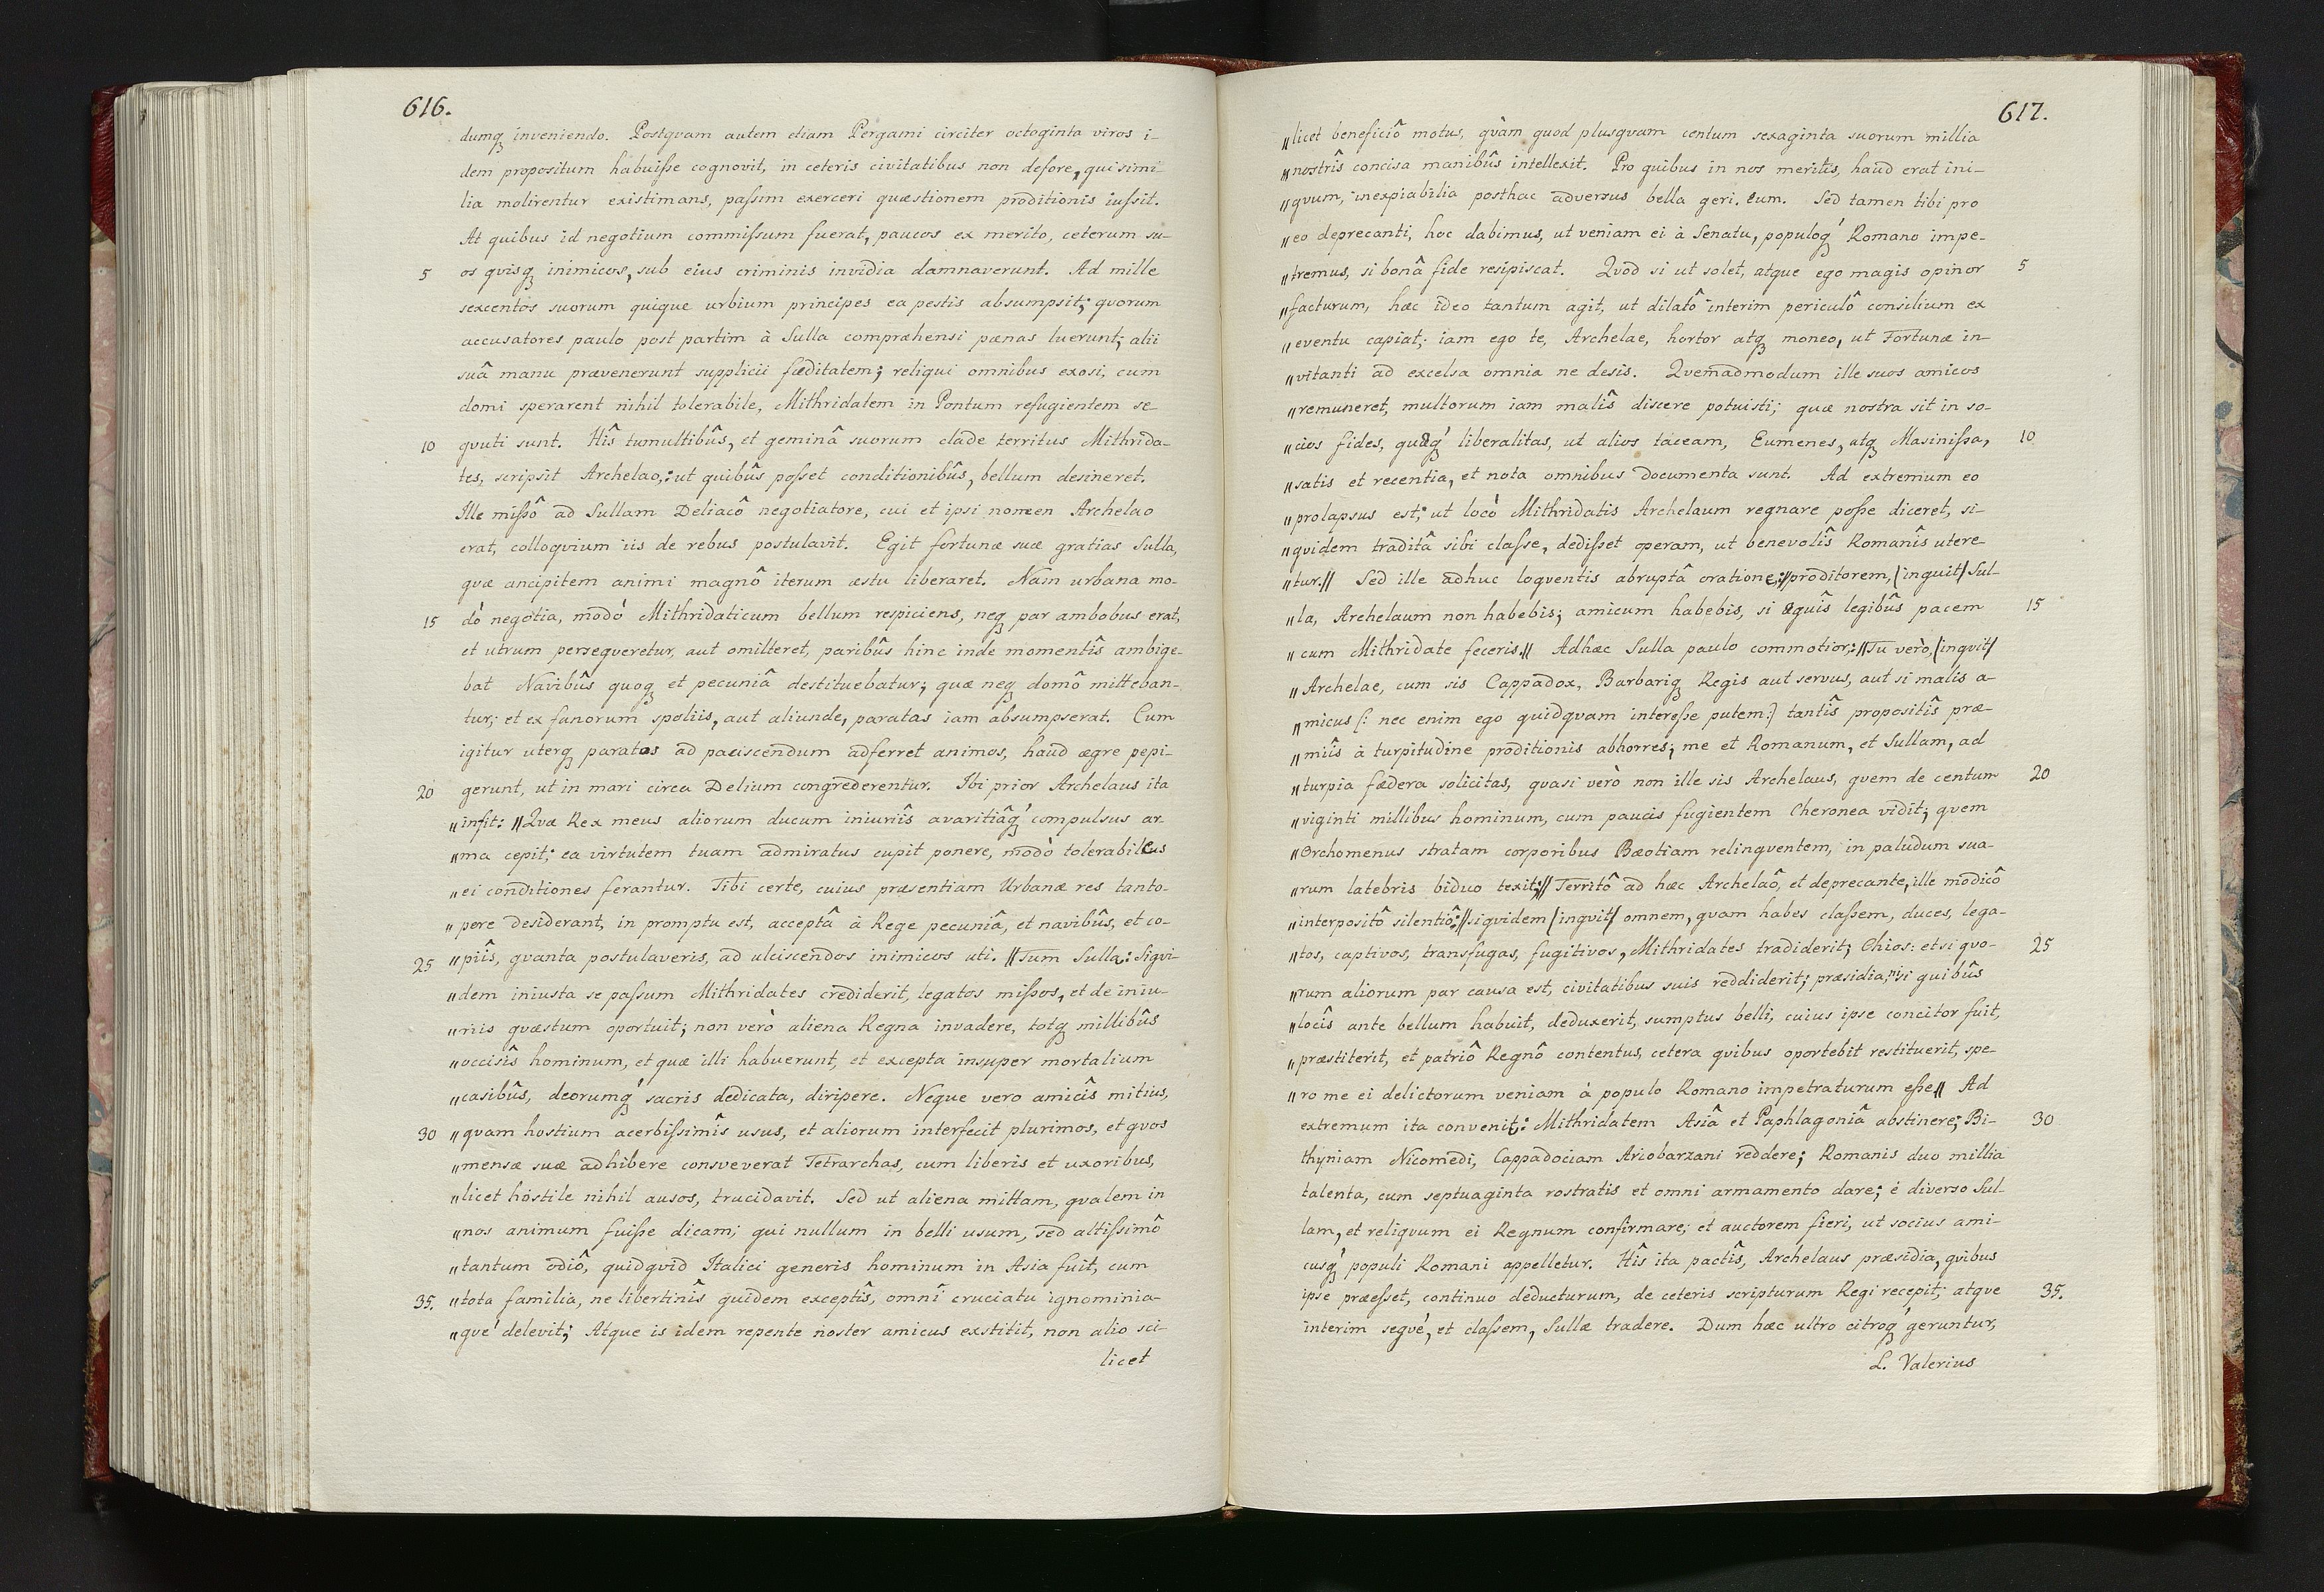 616.
dumq́ inveniendo. Postqvam autem etiam Pergami circiter octoginta viros i-
dem propositum habuiſse cognovit, in ceteris civitatibus non defore, qui simi-
lia molirentur existimans, paſsim exerceri quæstionem proditionis iuſsit.
At quibus id negotium commiſsum fuerat, paucos ex merito, ceterum su-
5 os qvisq́ inimicos, sub eius criminis invidia damnaverunt. Ad mille
sexcentos suorum quique urbium principes ea pestis absumpsit; qvorum
accusatores paulo post partim à Sulla compræhensi pœnas luerunt; alii
suâ manu prævenerunt supplicii fœditatem; reliqui omnibus exosi, cum
domi sperarent nihil tolerabile, Mithridatem in Pontum refugientem se-
10 qvuti sunt. Hîs tumultibûs, et geminâ suorum clade territus Mithrida-
tes, scripsit Archelao,: ut quibûs poſset conditionibûs, bellum desineret.
Ille miſsô ad Sullam Deliacô negotiatore, cui et ipsi nomen Archelao
erat, colloqvium iis de rebus postulavit. Egit fortunæ suæ gratias Sulla,
qvæ ancipitem animi magnô iterum æstu liberaret. Nam urbana mo-
15 dò negotia, modò Mithridaticum bellum respiciens, neq́ par ambobus erat,
et utrum perseqveretur, aut omitteret, paribûs hinc inde momentîs ambige-
bat Navibûs quoq́ et pecuniâ destituebatur; quæ neq́ domô mitteban-
tur; et ex fanorum spoliis, aut aliunde, paratas iam absumpserat. Cum
igitur uterq́ paratos ad paciscendum adferret animos, haud ægre pepi-
20 gerunt, ut in mari circa Delium congrederentur. Ibi prior Archelaus ita
„infit: //Qvæ Rex meus aliorum ducum iniuriîs avaritiâq́ compulsus ar
„ma cepit; ea virtutem tuam admiratus cupit ponere, modò tolerabiles
„ei conditiones ferantur. Tibi certe, cuius præsentiam Urbanæ res tanto-
„pere desiderant, in promptu est, acceptâ à Rege pecuniâ, et navibûs, et co-
25 „piîs, qvanta postulaveris, ad ulciscendos inimicos uti. //Tum Sulla: Siqvi-
„dem iniusta se paſsum Mithridates crediderit, legatos miſsos, et de iniu-
„riis qvæstum oportuit; non verò aliena Regna invadere, totq́ millibûs
„occisîs hominum, et quæ illi habuerunt, et excepta insuper mortalium
„casibûs, deorumq́ sacris dedicata, diripere. Neque vero amicîs mitius,
30 „qvam hostium acerbiſsimîs usus, et aliorum interfecit plurimos, et qvos
„mensæ suæ adhibere consveverat Tetrarchas, cum liberis et uxoribus,
„licet hostile nihil ausos, trucidavit. Sed ut aliena mittam, qvalem in
„nos animum fuiſse dicam; qui nullum in belli usum, sed altiſsimô
„tantum odiô, quidqvid Italici generis hominum in Asia fuit, cum
35. „tota familia, ne libertinîs quidem exceptîs, omnî cruciatu ignominia-
„qve' delevit; Atque is idem repente noster amicus exstitit, non alio sci-
licet
617.
„licet beneficiô motus, qvàm quod plusqvam centum sexaginta suorum millia
„nostrîs concisa manibûs intellexit. Pro quibus in nos meritis, haud erat ini-
„qvum, inexpiabilia posthac adversus bella geri. eum. Sed tamen tibi pro
„eo deprecanti, hoc dabimus, ut veniam ei à Senatu, populoq́ Romano impe-
„tremus, si bonâ fide resipiscat. Qvod si ut solet, atque ego magis opinor 5
„facturum, hæc ideo tantum agit, ut dilatô interim periculô consilium ex
„eventu capiat; iam ego te, Archelae, hortor atq́ moneo, ut Fortunæ in-
„vitanti ad excelsa omnia ne desis. Qvemadmodum ille suos amicos
„remuneret, multorum iam malîs discere potuisti; quæ nostra sit in so-
„cios fides, quæq́ liberalitas, ut alios taceam, Eumenes, atq́ Masiniſsa, 10
„satis et recentia, et nota omnibus documenta sunt. Ad extremum eo
„prolapsus est; ut locò Mithridatis Archelaum regnare poſse diceret, si-
„qvidem traditâ sibi claſse, dediſset operam, ut benevolîs Romanîs utere-
„tur.// Sed ille adhuc loqventis abruptâ oratione;://proditorem, /inquit/ Sul-
„la, Archelaum non habebis; amicum habebis, si æquîs legibûs pacem 15
„cum Mithridate feceris.// Adhæc Sulla paulo commotior;://Tu verò, /inqvit/
„Archelae, cum sis Cappadox, Barbariq́ Regis aut servus, aut si malis a-
„micus /: nec enim ego quidqvam intereſse putem:/ tantîs propositîs præ-
„miîs à turpitudine proditionis abhorres; me et Romanum, et Sullam, ad
„turpia fœdera solicitas, qvasi verò non ille sis Archelaus, qvem de centum 20
„viginti millibus hominum, cum paucis fugientem Cheronea vidit; qvem
„Orchomenus stratam corporibus Bæotiam relinqventem, in paludum sua-
„rum latebris biduo texit;// Territô ad hæc Archelaô, et deprecante, ille modicô
„interpositô silentiô://siqvidem /inqvit/ omnem, qvam habes claſsem, duces, lega-
„tos, captivos, transfugas, fugitivos, Mithridates tradiderit; Chios: et si qvo- 25
„rum aliorum par causa est, civitatibus suis reddiderit; præsidia, nisi quibûs
„locîs ante bellum habuit, deduxerit, sumptus belli, cuius ipse concitor fuit,
„præstiterit, et patriô Regnô contentus, cetera qvibus oportebit restituerit, spe-
„ro me ei delictorum veniam à populo Romano impetraturum eſse// Ad
extremum ita convenit: Mithridatem Asiâ et Paphlagoniâ abstinere; Bi- 30
thyniam Nicomedi, Cappadociam Ariobarzani reddere; Romanis duo millia
talenta, cum septuaginta rostratis et omni armamento dare; è diverso Sul-
lam, et reliqvum ei Regnum confirmare; et auctorem fieri, ut socius ami-
cusq́ populi Romani appelletur. Hîs ita pactîs, Archelaus præsidia, qvibus
ipse præeſset, continuo deducturum, de ceteris scripturum Regi recepit; atqve 35.
interim seqvé, et claſsem, Sullæ tradere. Dum hæc ultro citroq́ geruntur,
L. Valerius